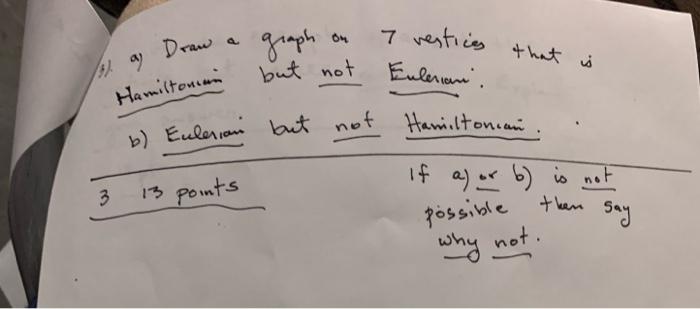 3). a) Draw a graph on 7 vertices that is
Hamiltonian but not Eulerian.
b) Eulerian but not Hamiltonian.
3 13 points
If a) or b) is not
possible then say
why not.